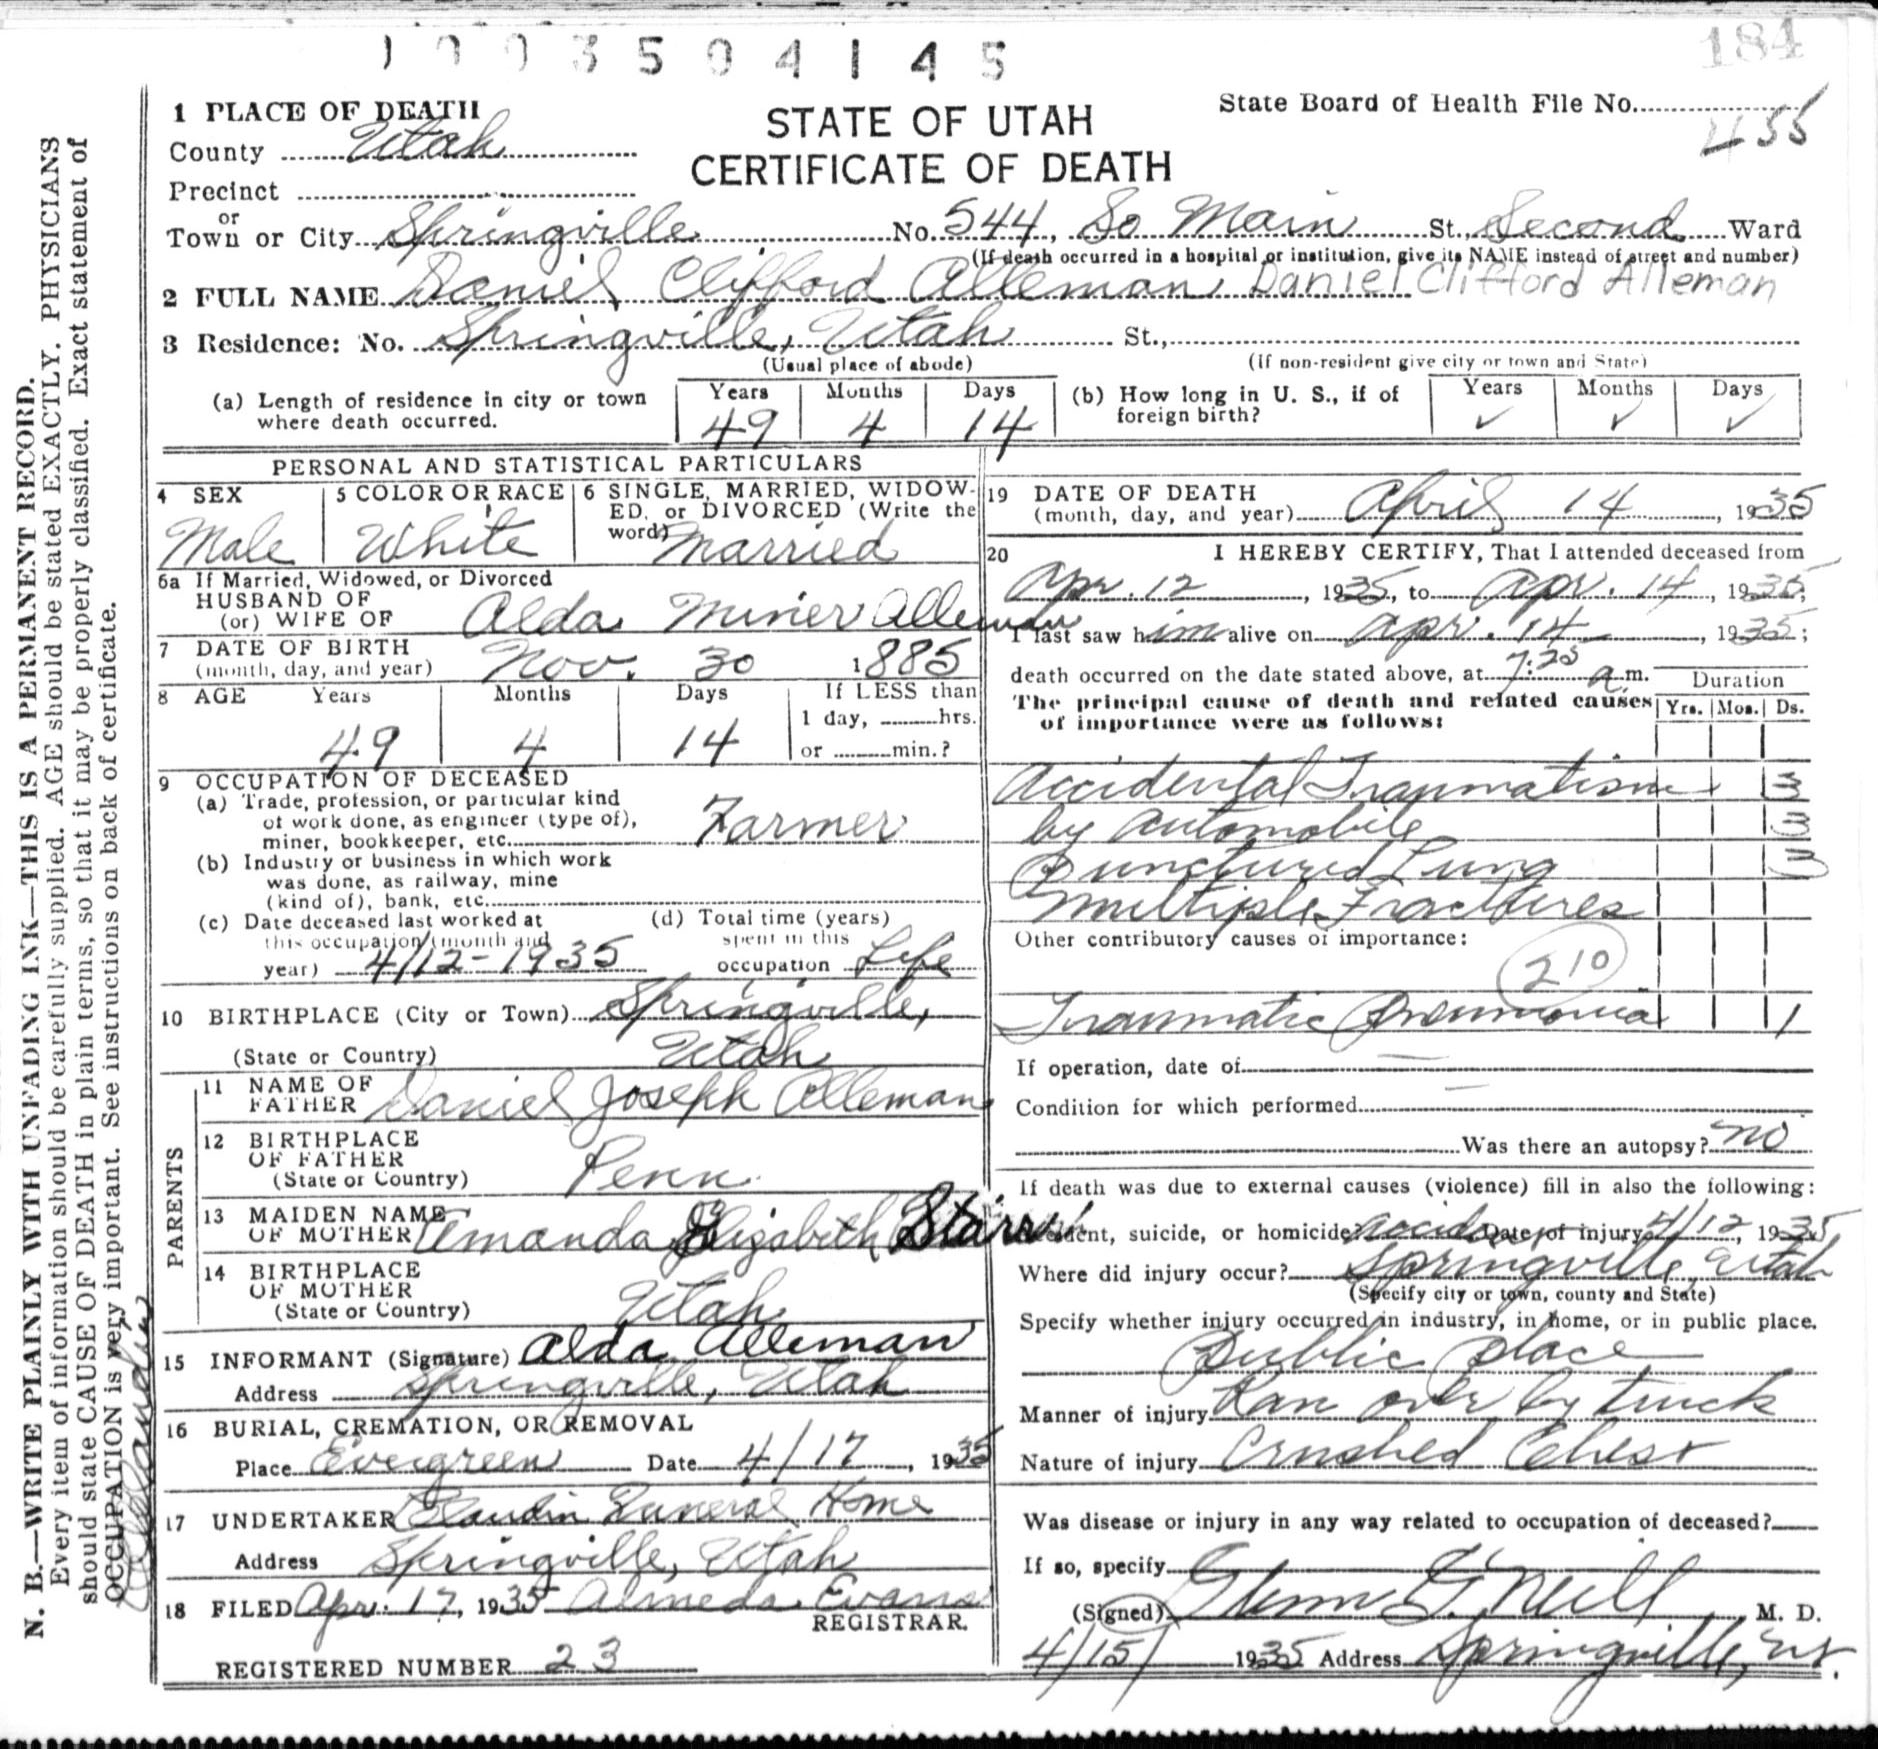 1003504145
184
1 PLACE OF DEATH
County Utah
Precinct
or
Town or City Springville No. 544, So Main St., Second Ward
(If death occurred in a hospital or institution, give its NAME instead of street and number)
STATE OF UTAH
CERTIFICATE OF DEATH
State Board of Health File No.
455
2 FULL NAME Daniel Clifford Alleman Daniel Clifford Alleman
3 Residence: No. Springville, Utah St.,
(Usual place of abode) (If non-resident give city or town and State)
(a) Length of residence in city or town where death occurred. Years 49 Months 4 Days 14
(b) How long in U. S., if of foreign birth? Years ✓ Months ✓ Days ✓
PERSONAL AND STATISTICAL PARTICULARS
4 SEX
Male
5 COLOR OR RACE
White
6 SINGLE, MARRIED, WIDOW-
ED, or DIVORCED (Write the
word) Married
6a If Married, Widowed, or Divorced
HUSBAND OF
(or) WIFE OF Alda Miner Alleman
7 DATE OF BIRTH
(month, day, and year) Nov. 30 1885
8 AGE Years Months Days If LESS than
1 day, hrs.
49 4 14 or min.?
9 OCCUPATION OF DECEASED
(a) Trade, profession, or particular kind
of work done, as engineer (type of),
miner, bookkeeper, etc. Farmer
(b) Industry or business in which work
was done, as railway, mine
(kind of), bank, etc.
(c) Date deceased last worked at
this occupation (month and
year) 4/12-1935
(d) Total time (years)
spent in this
occupation Life
10 BIRTHPLACE (City or Town) Springville,
(State or Country) Utah
PARENTS
11 NAME OF
FATHER Daniel Joseph Alleman
12 BIRTHPLACE
OF FATHER
(State or Country) Penn.
13 MAIDEN NAME
OF MOTHER Amanda Elizabeth Starr
14 BIRTHPLACE
OF MOTHER
(State or Country) Utah
15 INFORMANT (Signature) Alda Alleman
Address Springville, Utah
16 BURIAL, CREMATION, OR REMOVAL
Place Evergreen Date 4/17, 1935
17 UNDERTAKER Claudin Funeral Home
Address Springville, Utah
18 FILED Apr. 17, 1935 Almeda Evans
REGISTRAR.
REGISTERED NUMBER 23
19 DATE OF DEATH
(month, day, and year) April 14, 1935
20 I HEREBY CERTIFY, That I attended deceased from
Apr. 12, 1935, to Apr. 14, 1935;
I last saw him alive on Apr. 14, 1935;
death occurred on the date stated above, at 7:25 a.m.
The principal cause of death and related causes
of importance were as follows:
Duration
Yrs. Mos. Ds.
Accidental Traumatism 3
by Automobile 3
Punctured Lung 3
Multiple Fractures
Other contributory causes of importance:
210
Traumatic Pneumonia 1
If operation, date of
Condition for which performed
Was there an autopsy? no
If death was due to external causes (violence) fill in also the following:
Accident, suicide, or homicide? Accid. Date of injury 4/12, 1935
Where did injury occur? Springville, Utah
(Specify city or town, county and State)
Specify whether injury occurred in industry, in home, or in public place.
Public place
Manner of injury Ran over by truck
Nature of injury Crushed Chest
Was disease or injury in any way related to occupation of deceased?
If so, specify
(Signed) Glenn G. Neill, M. D.
4/15/ 1935 Address Springville, Ut.
N. B.—WRITE PLAINLY WITH UNFADING INK—THIS IS A PERMANENT RECORD.
Every item of information should be carefully supplied. AGE should be stated EXACTLY. PHYSICIANS
should state CAUSE OF DEATH in plain terms, so that it may be properly classified. Exact statement of
OCCUPATION is very important. See instructions on back of certificate.